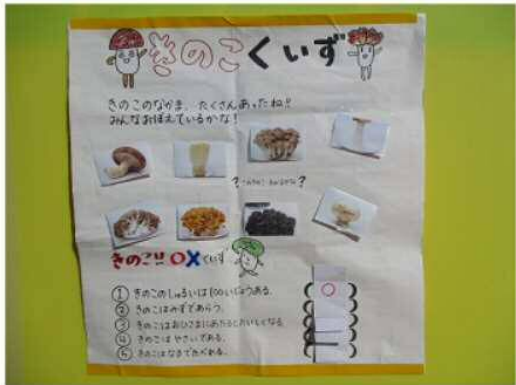 きのこくいず
きのこのなかま、たくさんあったね!!
みんなおぼえているかな!
きのこ!! ○×くいず
① きのこのしゅるいは100いじょうある。
② きのこはみずであらう。
③ きのこはおひさまにあたるとおいしくなる
④ きのこはやさいである。
⑤ きのこはなまでたべれる。